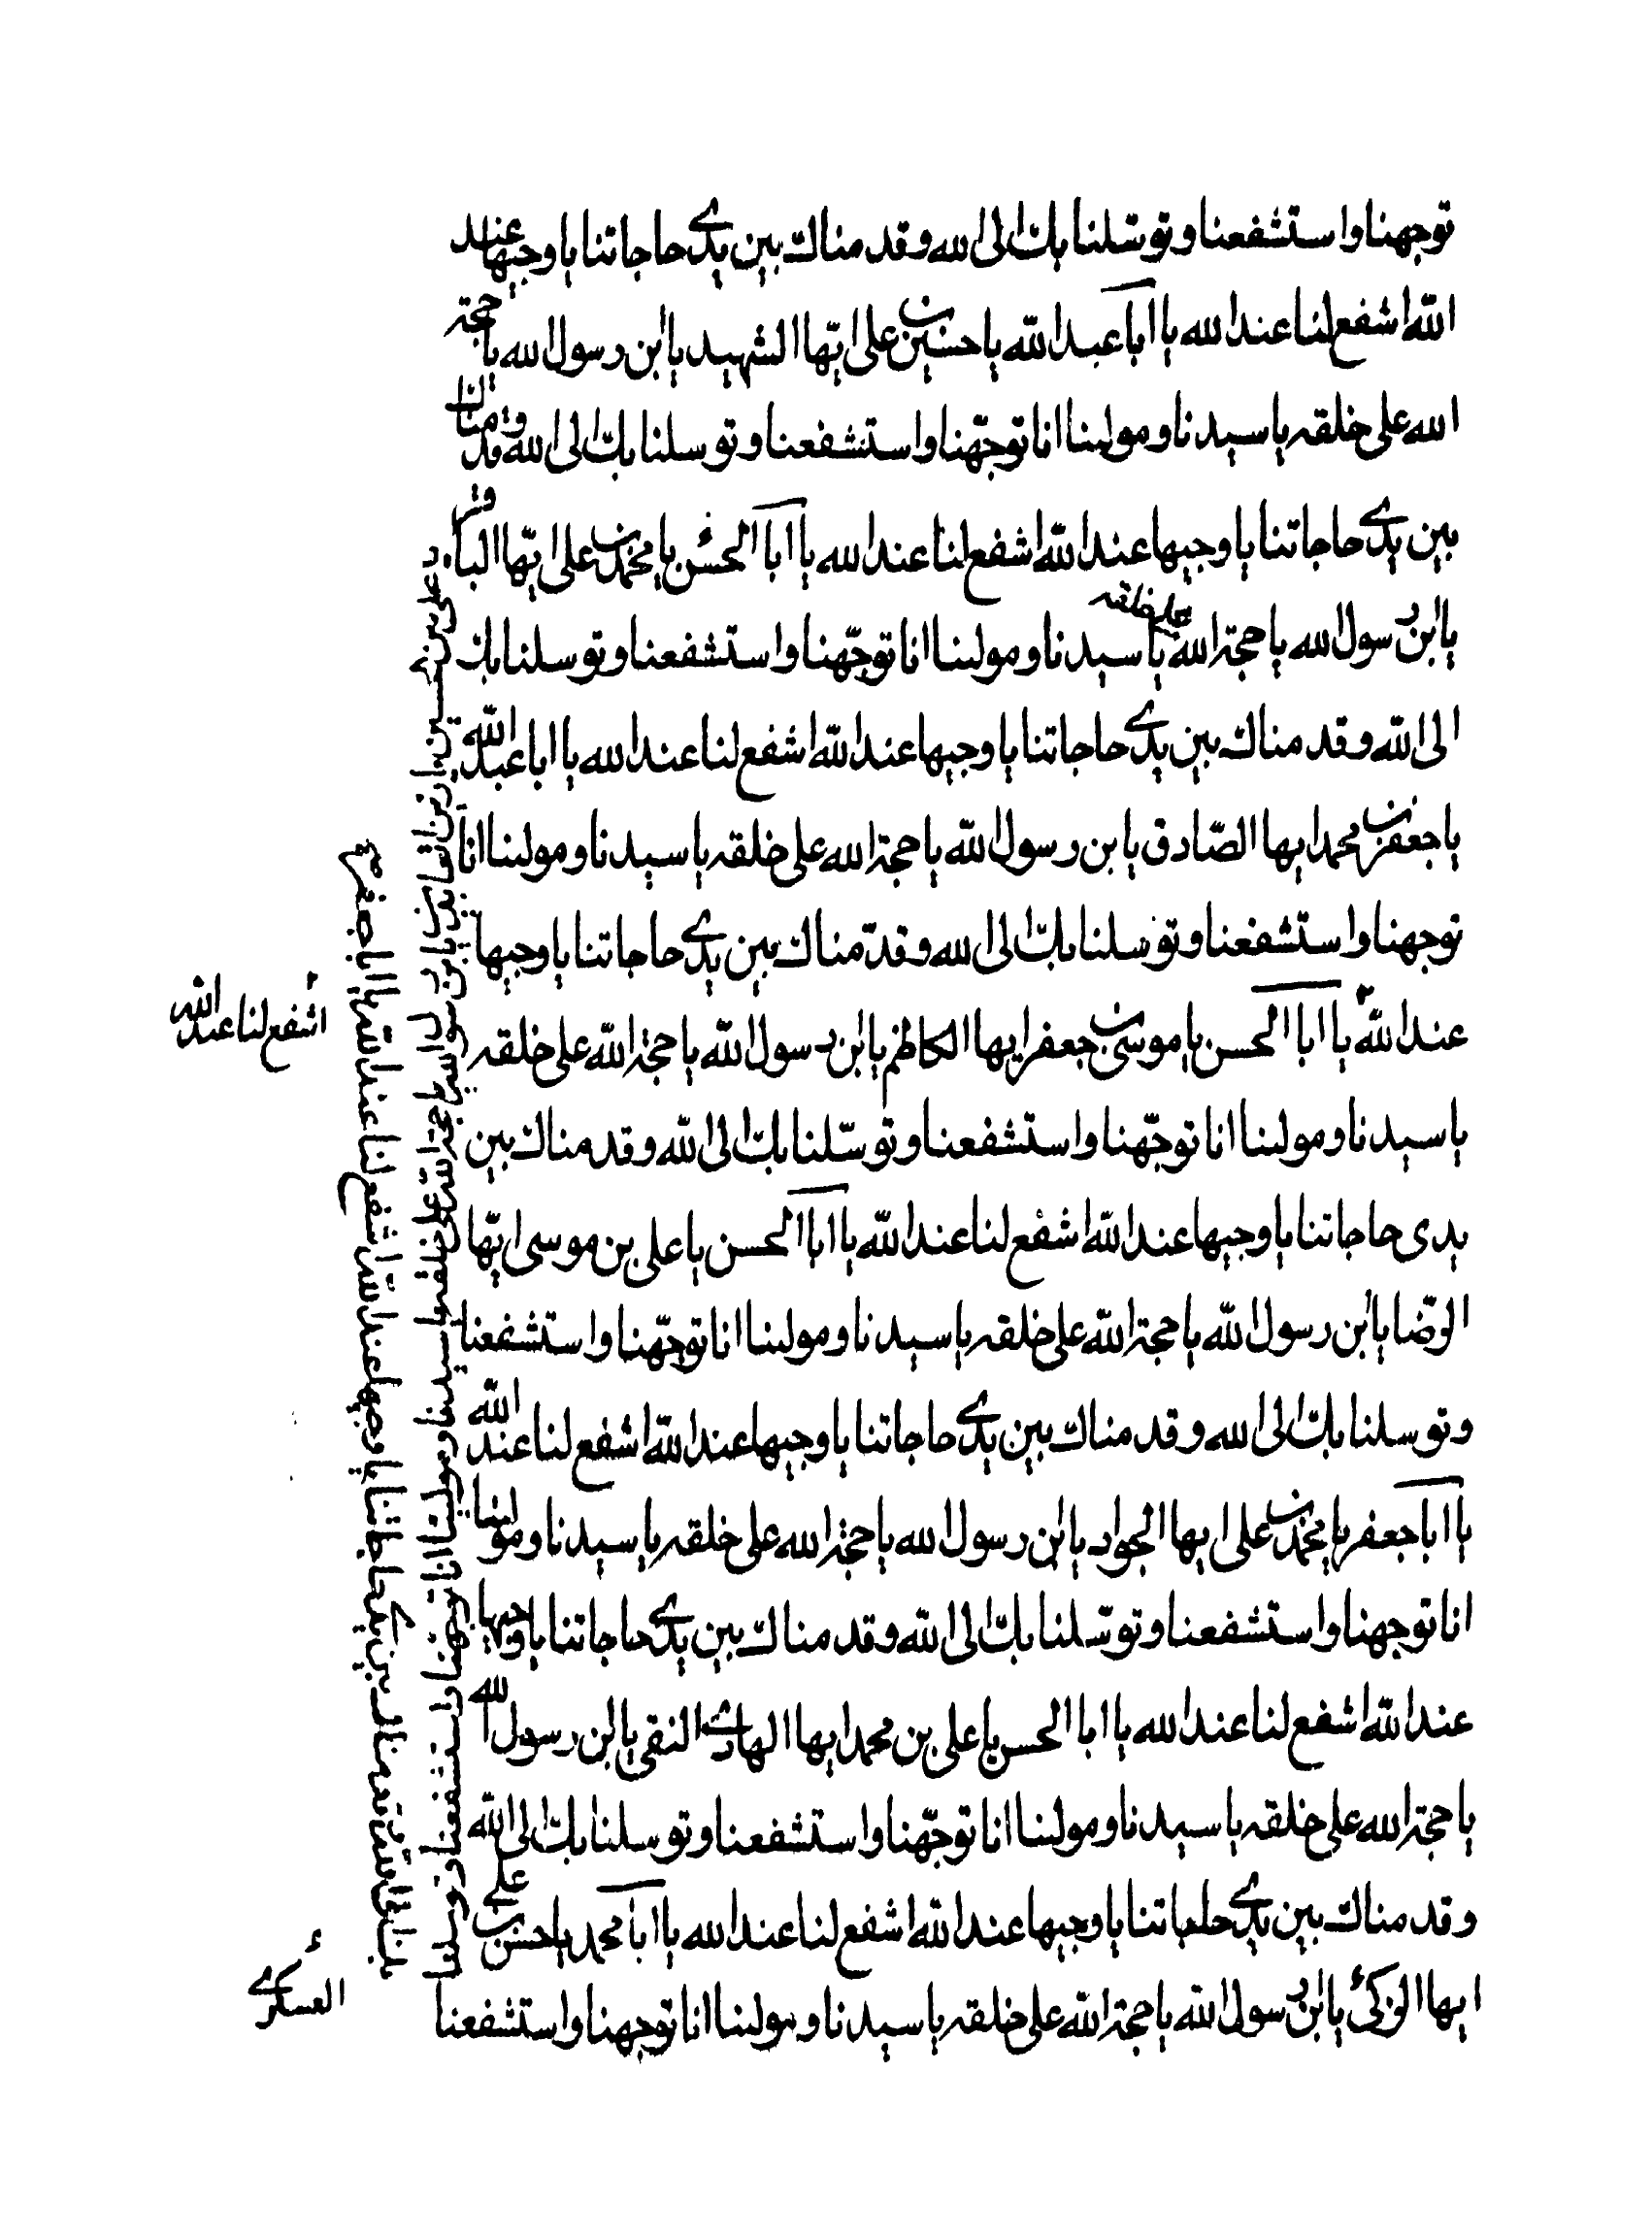 توجهنا واستشفعنا وتوسّلنا بك الى الله وقدمناك بين يدي حاجاتنا يا وجيها عند
الله اشفع لنا عند الله يا ابا عبد الله يا حسين بن علي ايّها الشهيد يا ابن رسول الله يا حجة
الله على خلقه يا سيدنا ومولينا انا توجّهنا واستشفعنا وتوسلنا بك الى الله وقدمناك
بين يدي حاجاتنا يا وجيها عند الله اشفع لنا عند الله يا ابا الحسن يا محمد بن علي ايّها الباقر
يا ابن رسول الله يا حجة الله على خلقه يا سيدنا ومولينا انا توجّهنا واستشفعنا وتوسلنا بك
الى الله وقدمناك بين يدي حاجاتنا يا وجيها عند الله اشفع لنا عند الله يا ابا عبد الله
يا جعفر بن محمد ايها الصّادق يا بن رسول الله يا حجة الله على خلقه يا سيدنا ومولينا انا
توجهنا واستشفعنا وتوسلنا بك الى الله وقدّمناك بين يدي حاجاتنا يا وجيها
عند الله يا ابا الحسن يا موسى بن جعفر ايها الكاظم يا ابن رسول الله يا حجة الله على خلقه
يا سيدنا ومولينا انا توجّهنا واستشفعنا وتوسّلنا بك الى الله وقدمناك بين
يدي حاجاتنا يا وجيها عند الله اشفع لنا عند الله يا ابا الحسن يا علي بن موسى ايّها
الرّضا يا ابن رسول الله يا حجة الله على خلقه يا سيدنا ومولينا انا توجّهنا واستشفعنا
وتوسلنا بك الى الله وقدمناك بين يدي حاجاتنا يا وجيها عند الله اشفع لنا عند الله
يا ابا جعفر يا محمد بن علي ايها الجواد يا ابن رسول الله يا حجة الله على خلقه يا سيدنا ومولينا
انا توجهنا واستشفعنا وتوسّلنا بك الى الله وقدمناك بين يدي حاجاتنا يا وجيها
عند الله اشفع لنا عند الله يا ابا الحسن يا علي بن محمد ايها الهادي النقي يا ابن رسول الله
يا حجة الله على خلقه يا سيدنا ومولينا انا توجّهنا واستشفعنا وتوسلنا بك الى الله
وقدمناك بين يدي حاجاتنا يا وجيها عند الله اشفع لنا عند الله يا ابا محمد يا حسن بن علي
ايها الزكي يا ابن رسول الله يا حجة الله على خلقه يا سيدنا ومولينا انا توجهنا واستشفعنا
يا علي بن حسين يا زين العابدين يا ابن رسول الله يا حجة الله على خلقه يا سيدنا ومولينا انا توجهنا واستشفعنا وتوسلنا
بك الى الله وقدمناك بين يدي حاجاتنا يا وجيها عند الله اشفع لنا عند الله يا ابا جعفر
اشفع لنا عند الله
العسكري